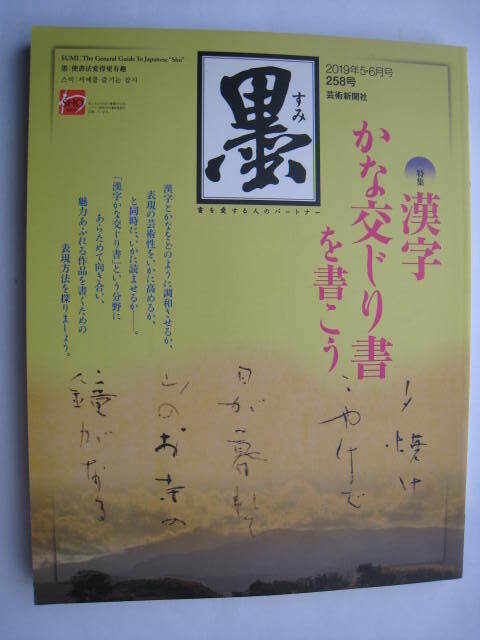 SUMI:The General Guide To Japanese "Shu"
墨:使書法変得更有趣
스미:서예를 즐기는 잡지
墨
すみ
書を愛する人のパートナー
2019年5・6月号
258号
芸術新聞社
特集
漢字
かな交じり書
を書こう
漢字とかなをどのように調和させるか、
表現の芸術性をいかに高めるか、
と同時に、いかに読ませるか──。
「漢字かな交じり書」という分野に
あらためて向き合い、
魅力あふれる作品を書くための
表現方法を探りましょう。
夕焼け
こやけで
日が暮れて
山のお寺の
鐘がなる